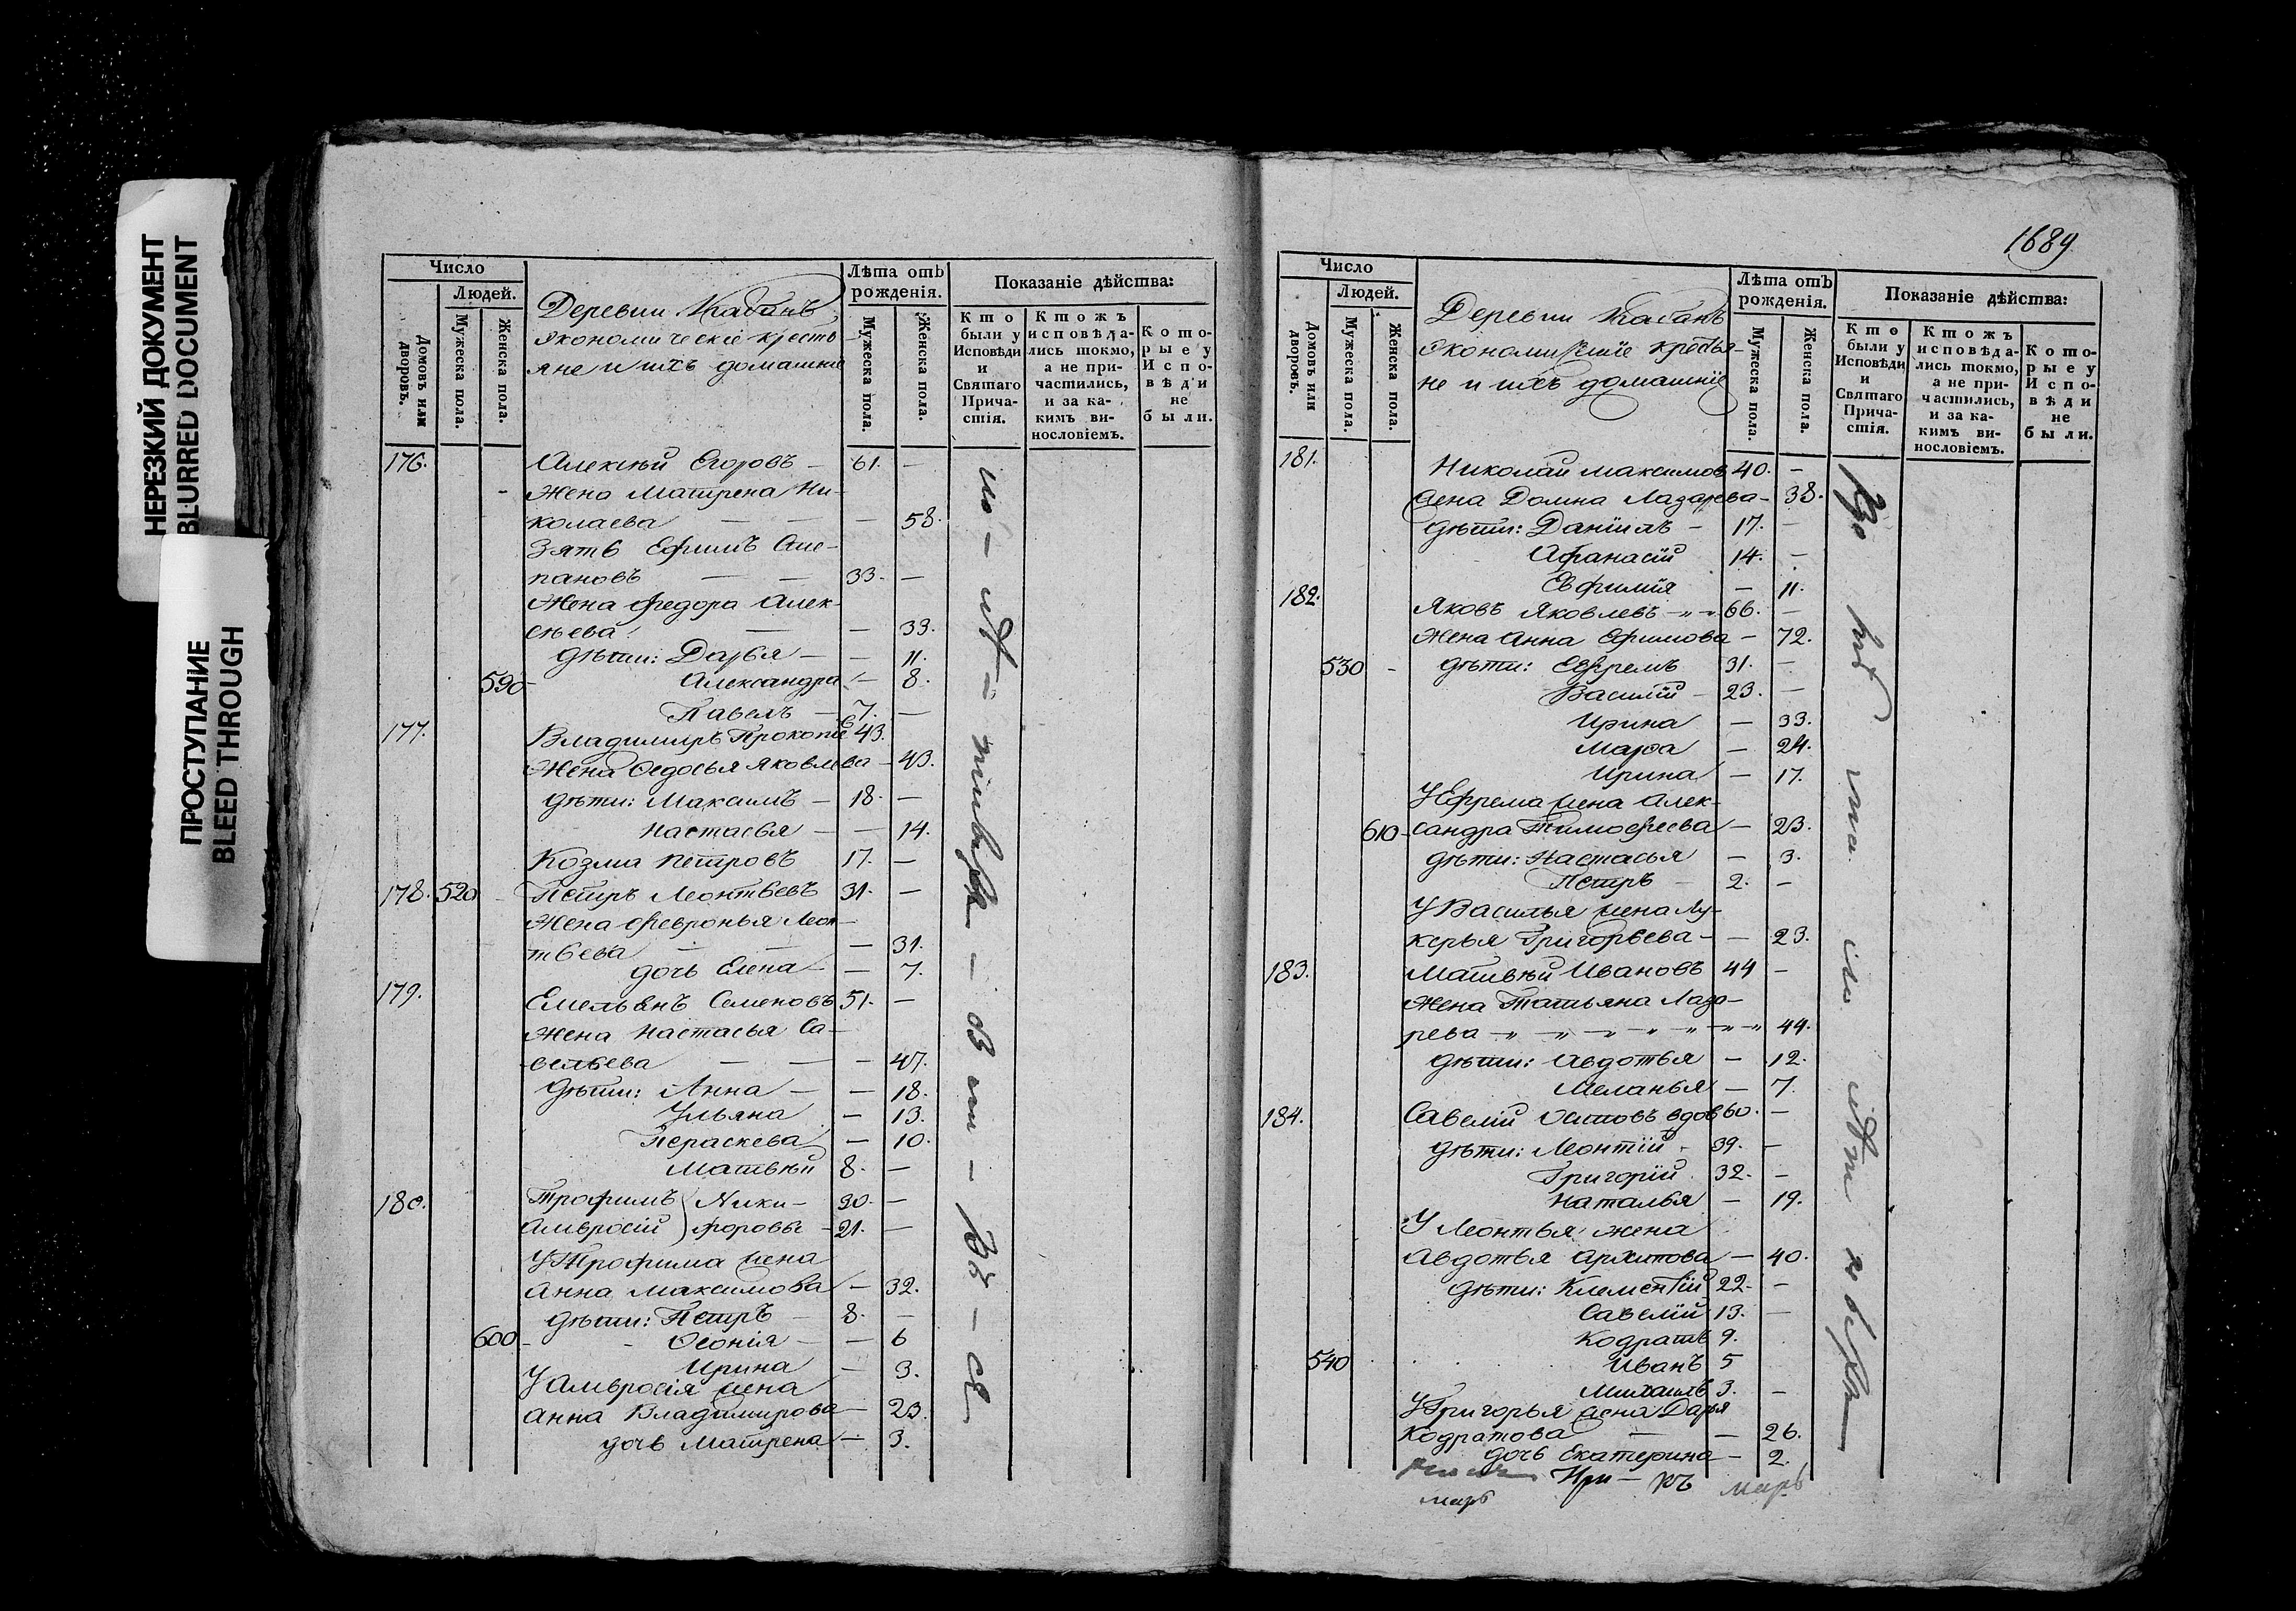 НЕРЕЗКИЙ ДОКУМЕНТ
BLURRED DOCUMENT
ПРОСТУПАНИЕ
BLEED THROUGH
Число
Людей.
Домовъ или дворовъ.
Мужеска пола.
Женска пола.
Деревни Кабанъ
Экономическіе кресть-
яне и ихъ домашніе
Лѣта отъ рожденія.
Мужеска пола.
Женска пола.
Показаніе дѣйства:
Кто были у Исповѣди и Святаго Причастія.
Ктожъ исповѣдались токмо, а не причастились, и за какимъ винословіемъ.
Которые у Исповѣди не были.
176. Алексѣй Егоровъ — 61. —
Жена Матрена Ни-
колаева — — — 58.
Зять Ефимъ Сте-
пановъ — — 33. —
Жена Федора Алек-
сѣева — — 33.
дѣти: Дарья — — 11.
590 Александра — 8.
Павелъ — 7. —
177. Владимиръ Прокопьев 43.
Жена Ѳедосья Яковлева — 43.
дѣти: Максимъ — 18. —
Настасья — — 14.
Козма Петровъ 17. —
178. 520 Петръ Леонтьевъ 31. —
Жена Февронья Леон-
тьева — — — 31.
дочь Елена — — 7.
179. Емельянъ Семеновъ 51. —
Жена Настасья Са-
вельева — — — 47.
дѣти: Анна — — 18.
Ульяна — 13.
Пераскева — 10.
Матвѣй 8. —
180. Трофимъ Ники- 30. —
Амвросій форовы — 21. —
У Трофима жена
Анна Максимова — 32.
дѣти: Петръ — 8. —
600 Ѳеонія — — 6
Ирина — 3.
У Амвросія жена
Анна Владимирова — 23.
дочь Матрена — 3.
1689
Число
Людей.
Домовъ или дворовъ.
Мужеска пола.
Женска пола.
Деревни Кабанъ
Экономическіе крестья-
не и ихъ домашніе
Лѣта отъ рожденія.
Мужеска пола.
Женска пола.
Показаніе дѣйства:
Кто были у Исповѣди и Святаго Причастія.
Ктожъ исповѣдались токмо, а не причастились, и за какимъ винословіемъ.
Которые у Исповѣди не были.
181. Николай Максимов 40. —
Жена Домна Лазарева — 38.
дѣти: Даніилъ — 17. —
Афанасій 14. —
Евфимія — 11.
182. Яковъ Яковлевъ 66. —
Жена Анна Ефимова — 72.
530 дѣти: Ефремъ 31. —
Василій — 23. —
Ирина — 33.
Марѳа — 24.
Ирина — 17.
У Ефрема жена Алек-
610 сандра Тимофеева — 23.
дѣти: Настасья — 3.
Петръ — 2. —
У Василья жена Лу-
керья Григорьева — — 23.
183. Матвѣй Ивановъ 44 —
Жена Татьяна Лаза-
рева — 44.
дѣти: Авдотья — 12.
Меланья — 7.
184. Савелій Осиповъ вдов 60. —
дѣти: Леонтій 39. —
Григорій 32. —
Наталья — 19.
У Леонтья жена
Авдотья Архипова — 40.
дѣти: Климентій 22. —
Савелій 13. —
Кодратъ 9.
540 Иванъ 5
Михаилъ 3. —
У Григорья жена Дарья
Кодратова — — 26.
дочь Екатерина — 2.